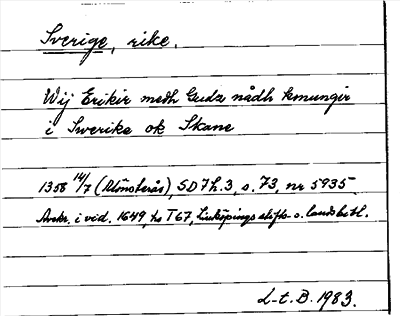 Sverige, rike.
Wij Erikir medh Gudz nådh konungir
i Swerike ok Skane
1358 14/7 (Almsterås), SD 7 h. 3, s. 73, nr 5935
Avskr. i vid. 1649, hs T 67, Linköpings stifts- o. landsbibl.
L-t. B. 1983.